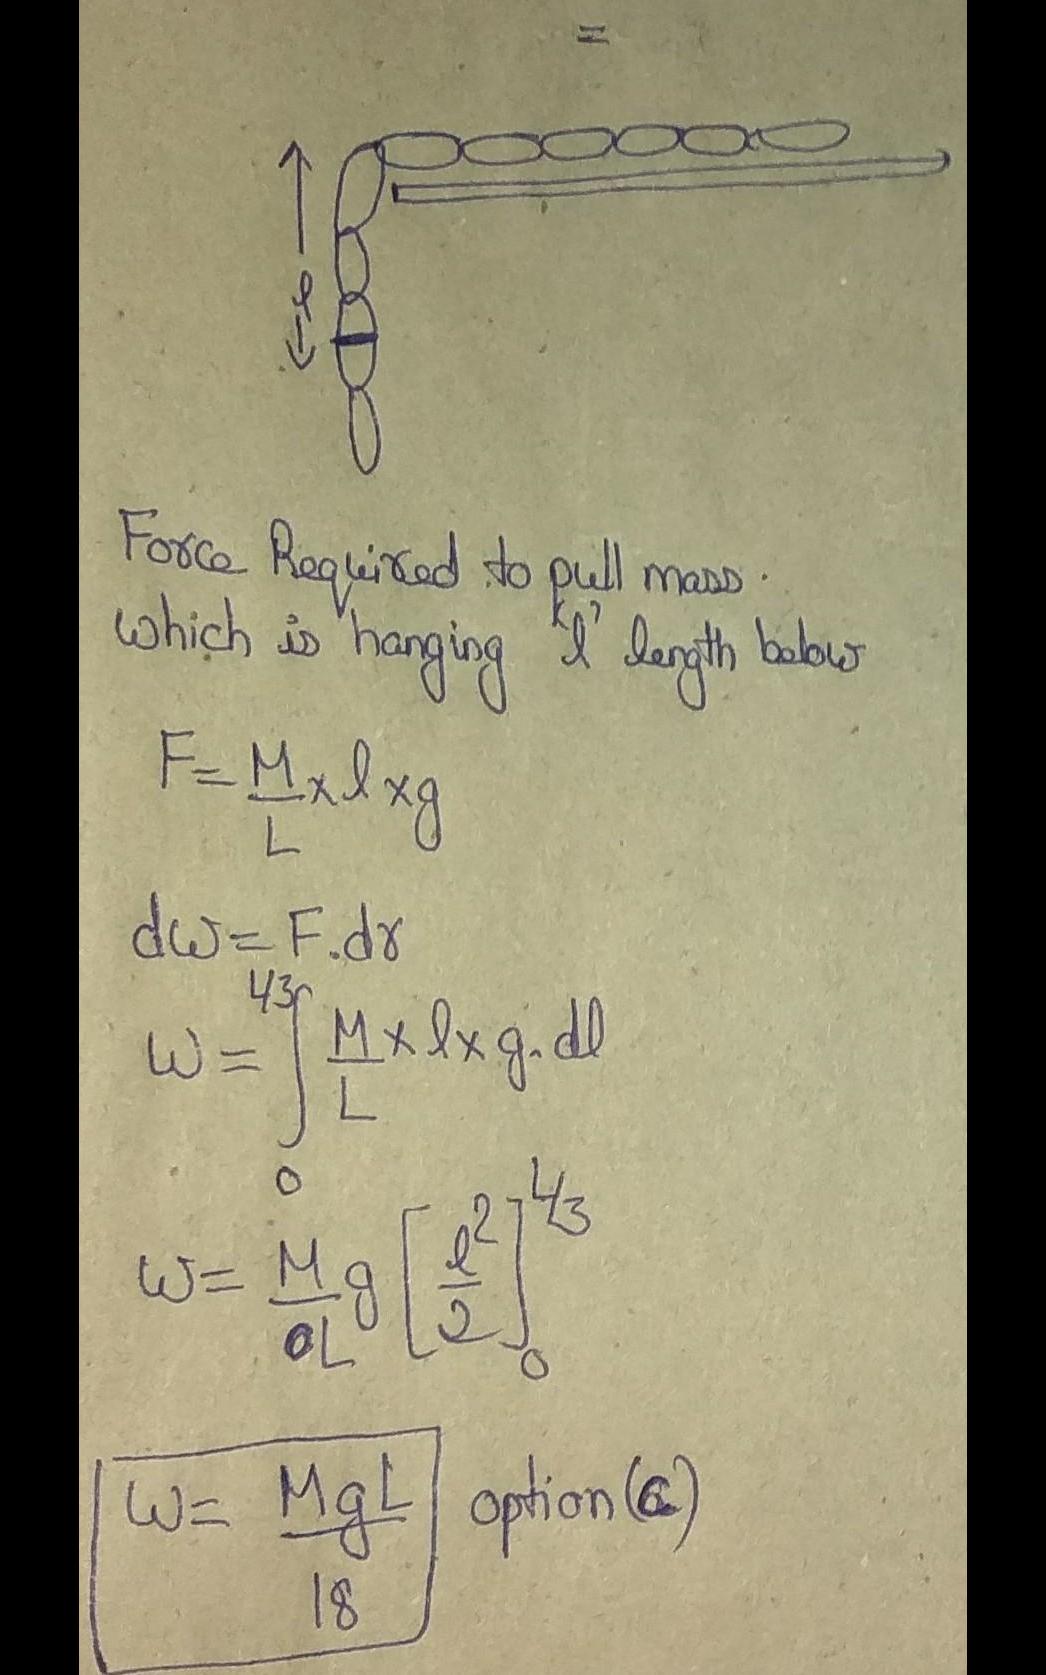 =
l
Force Required to pull mass.
which is hanging 'l' length below
F = M/L × l × g
dw = F.dr
W = ∫₀^{L/3} M/L × l × g. dl
W = M/L g [l²/2]₀^{L/3}
W = MgL/18 option (c)